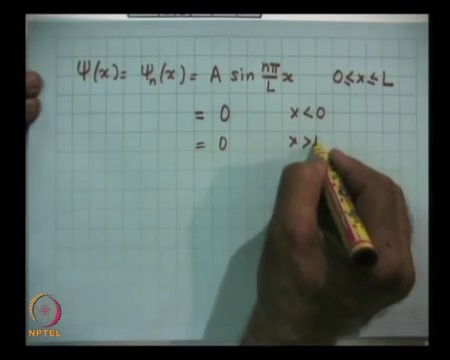 Ψ(x) = Ψn(x) = A sin nπ/L x 0 ≤ x ≤ L
= 0 x < 0
= 0 x >
NPTEL